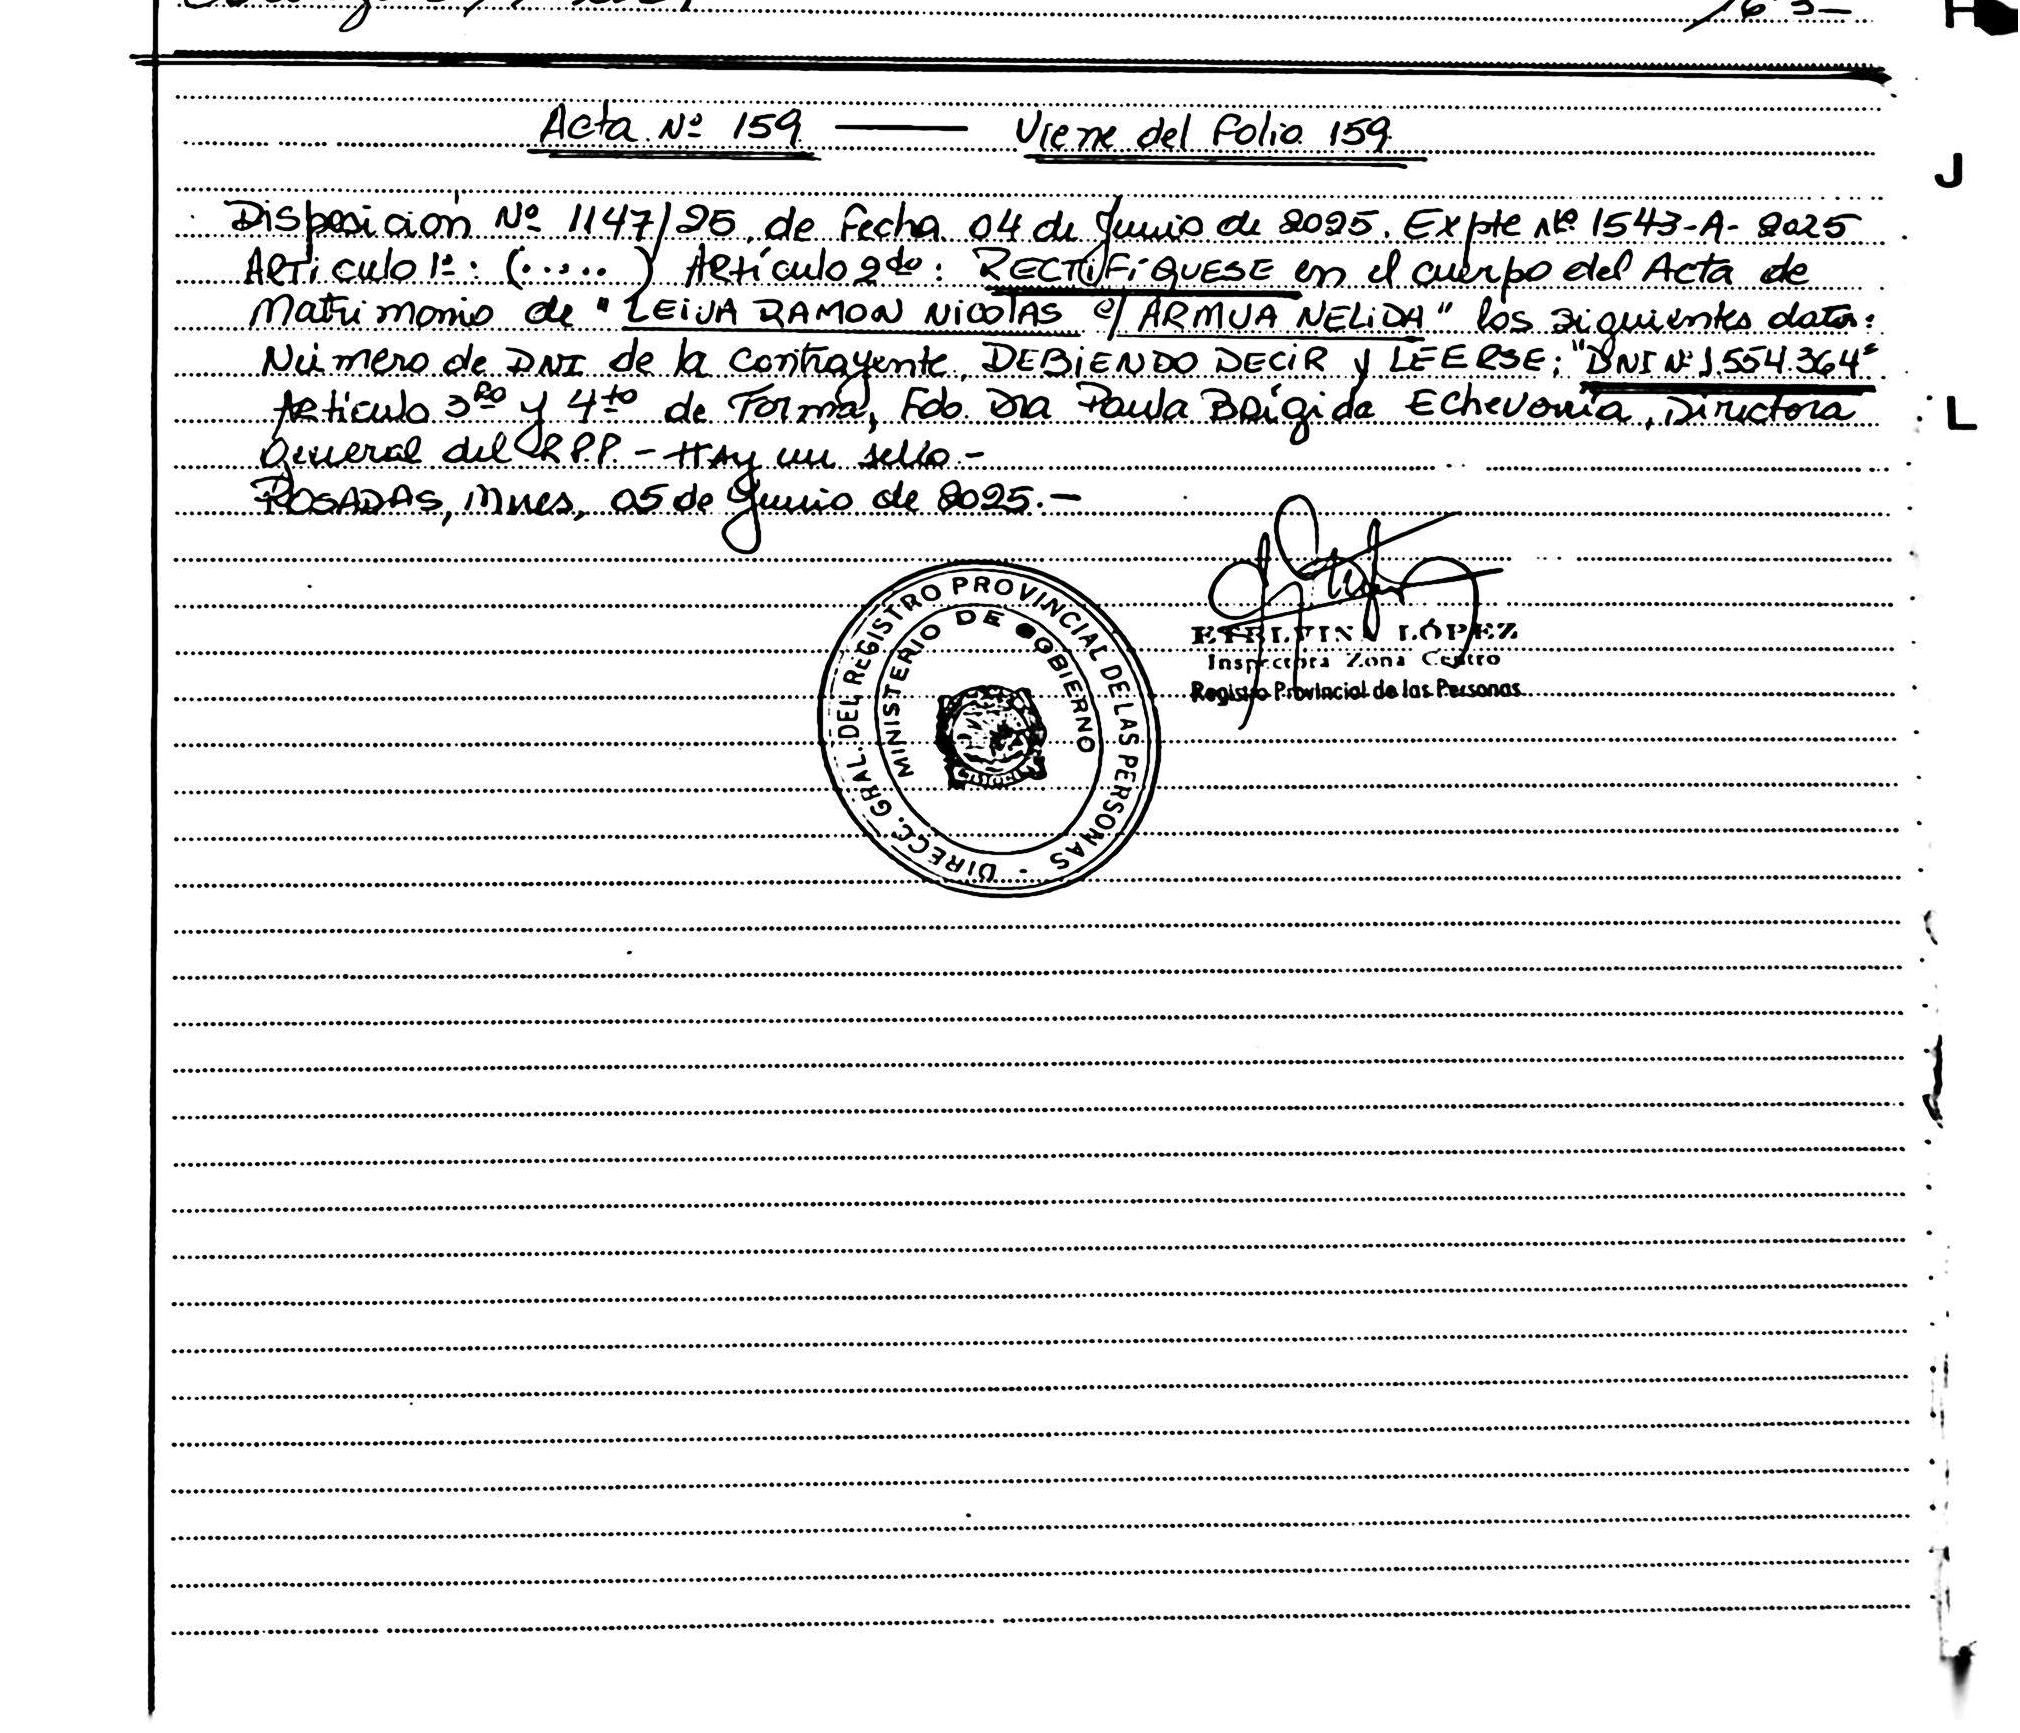 Acta Nº 159 —— Viene del Folio 159
Disposición Nº 1147/25 de fecha 04 de Junio de 2025. Expte Nº 1543-A-2025
Artículo 1º: (.....) Artículo 2do: RECTIFÍQUESE en el cuerpo del Acta de
Matrimonio de "LEIVA RAMON NICOLAS c/ ARMUA NELIDA" los siguientes datos:
Número de DNI de la contrayente, DEBIENDO DECIR y LEERSE: "DNI Nº 1.554.364"
Artículo 3ro y 4to de Forma, Fdo. Dra Paula Brígida Echeverría, Directora
General del RPP - Hay un sello.-
POSADAS, Mnes, 05 de Junio de 2025.-
DIRECC. GRAL. DEL REGISTRO PROVINCIAL DE LAS PERSONAS -
MINISTERIO DE GOBIERNO
ETELVINA LÓPEZ
Inspectora Zona Centro
Registro Provincial de las Personas
H
J
L